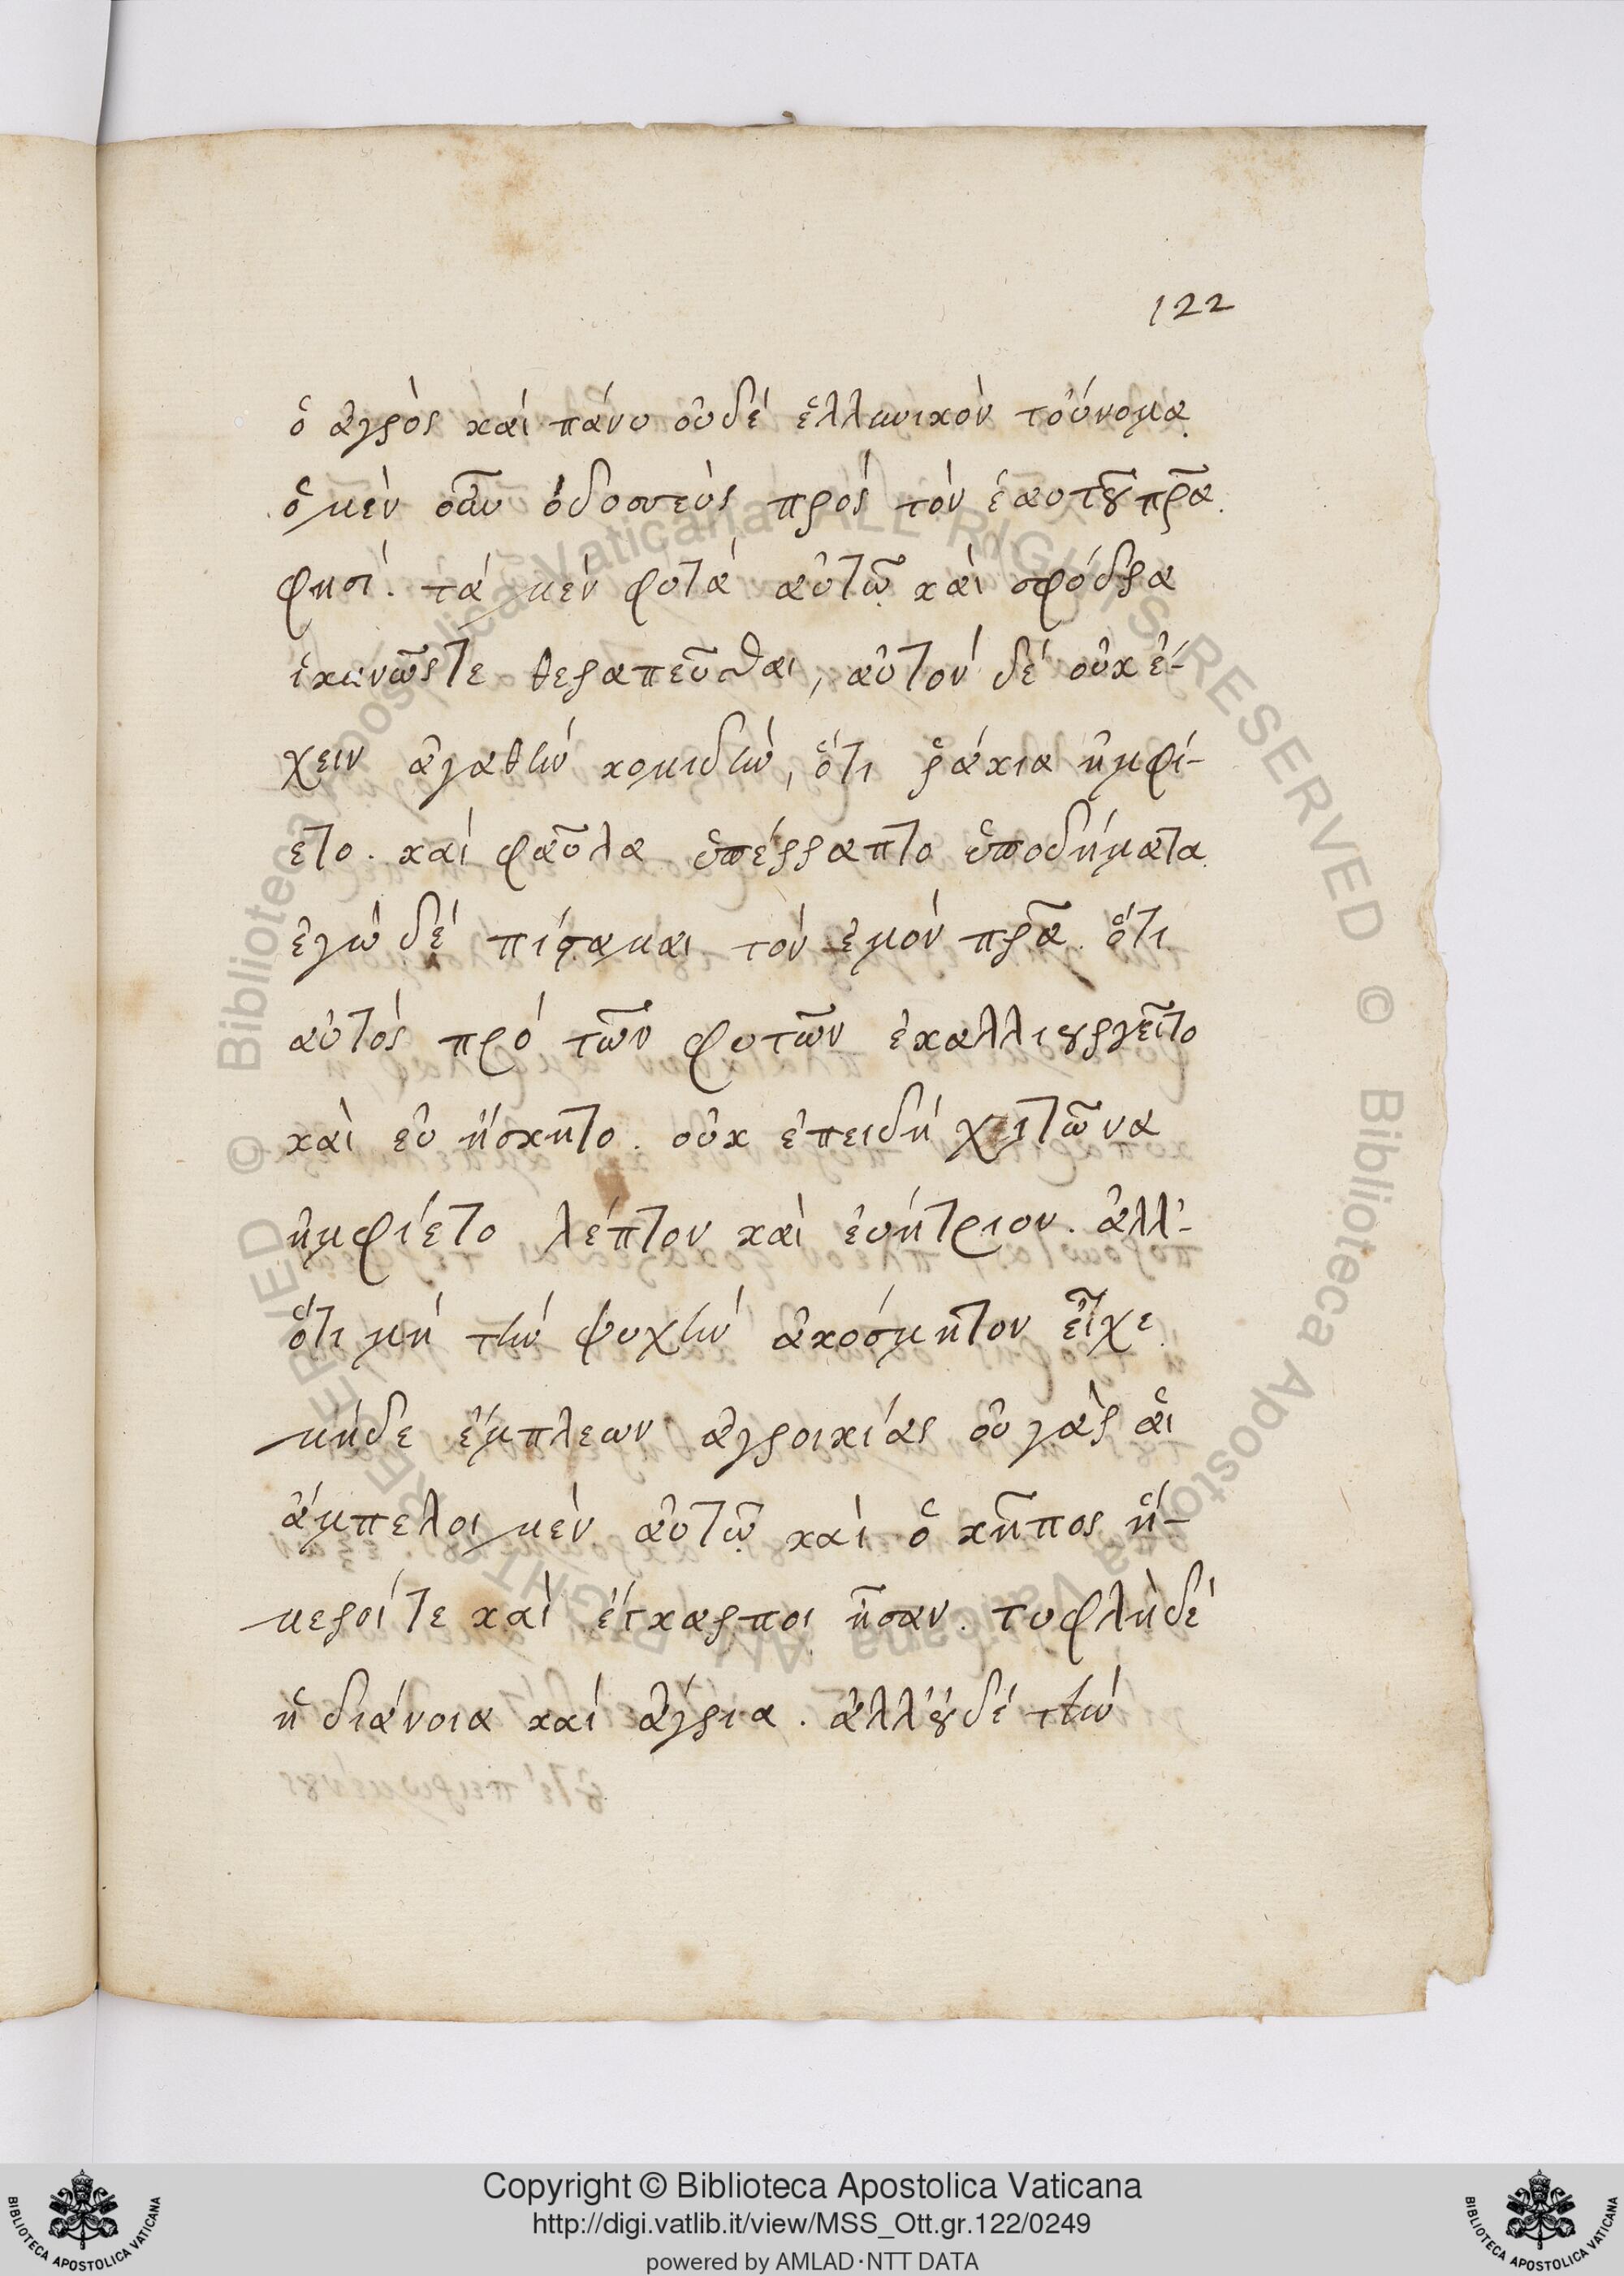 122
ὁ ἀγρὸς καὶ πάνυ οὐδὲ ἑλληνικὸν τοὔνομα.
ὁ μὲν οὖν ὀδυσσεὺς πρὸς τὸν ἑαυτοῦ πρ̃α.
φησί. τὰ μὲν φυτὰ αὐτῷ καὶ σφόδρα
ἱκανῶςτε θεραπεῦσθαι, αὐτὸν δὲ οὐκ ἔ-
χειν ἀγαθὴν κομιδὴν, ὅτι ῥάκια ἠμφί-
ετο. καὶ φαῦλα ὑπέρραπτο ὑποδήματα.
ἐγὼ δὲ πίσαμαι τὸν ἐμὸν πρ̃α. ὅτι
αὐτὸς πρὸ τῶν φυτῶν ἐκαλλιουργεῖτο
καὶ εὐ ἤσκητο. οὐκ ἐπειδὴ χιτῶνα
ἠμφίετο λέπτον καὶ ἐυήτριον. ἀλλ'-
ὅτι μὴ τὴν ψυχὴν ἀκόσμητον εἶχε.
μήδε ἔμπλεων ἀγροικίας οὐ γὰρ αἱ
ἄμπελοι μὲν αὐτῷ καὶ ὁ κῆπος ἥ-
μεροί τε καὶ ἔγκαρποι ἦσαν. τυφλὴ δὲ
ἡ διάνοια καὶ ἀγρία. ἀλλ' οὐδὲ τὴν
Copyright © Biblioteca Apostolica Vaticana
http://digi.vatlib.it/view/MSS_Ott.gr.122/0249
powered by AMLAD·NTT DATA
BIBLIOTECA APOSTOLICA VATICANA
BIBLIOTECA APOSTOLICA VATICANA
© Biblioteca Apostolica Vaticana ALL RIGHTS RESERVED
© Biblioteca Apostolica Vaticana ALL RIGHTS RESERVED